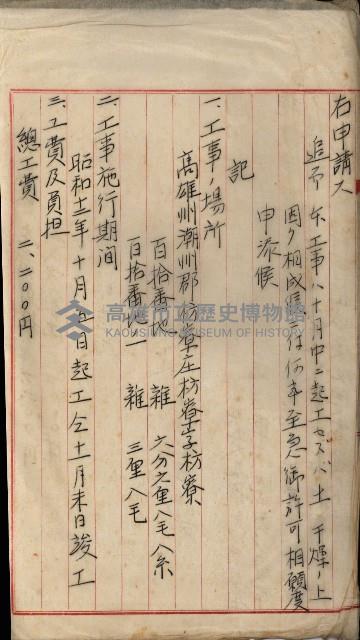 右申請ス
追而本工事ハ十月中ニ起工セズバ土干燥ノ上
困リ相成候条何卒至急御許可相願度
申添候
記
一、工事ノ場所
高雄州潮州郡枋寮庄枋寮字枋寮
百拾番地 雑 六分六厘八毛八糸
百拾番地ノ一 雑 三厘八毛
二、工事施行期间
昭和十二年十月 日起工仝十一月末日竣工
三、工費及負担
總工費 二、二〇〇円
高雄市立歷史博物館
KAOHSIUNG MUSEUM OF HISTORY